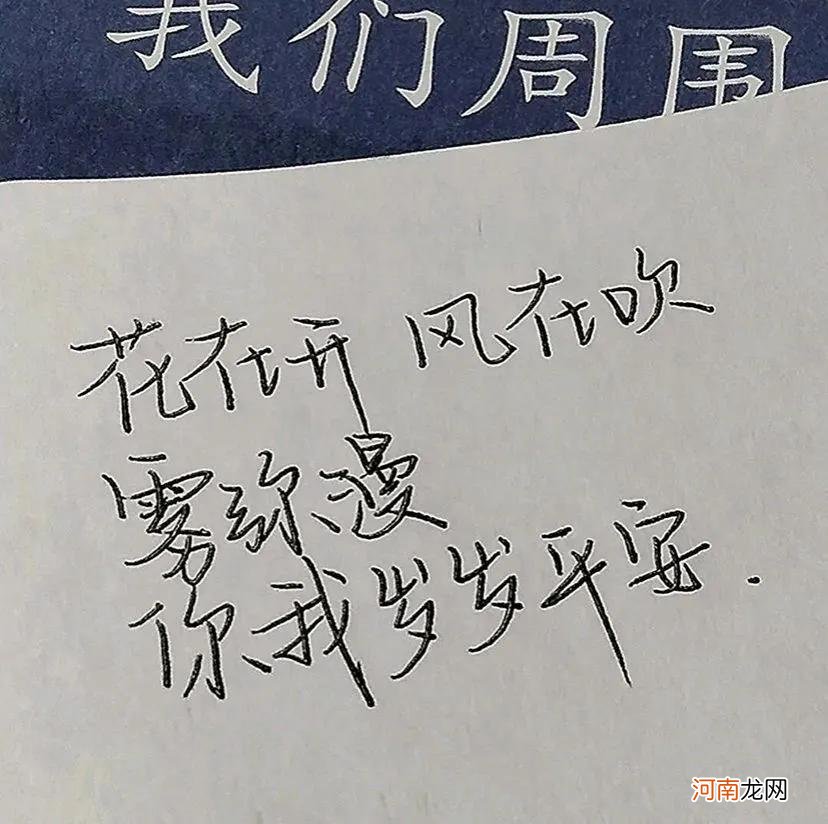 我们周围
花在开 风在吹
雾弥漫
你我岁岁平安.
河南龙网